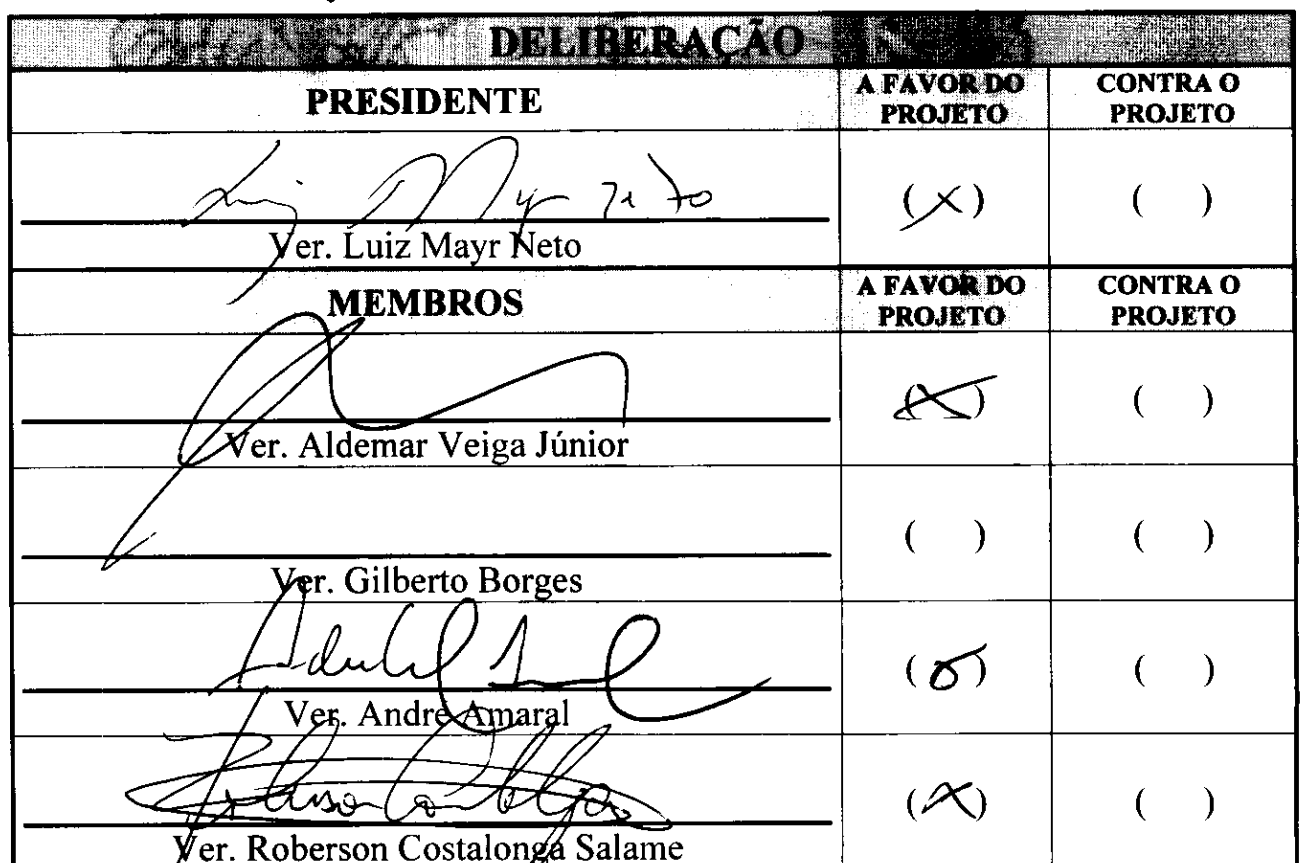 DELIBERAÇÃO
PRESIDENTE
A FAVOR DO PROJETO
CONTRA O PROJETO
(X)
( )
Ver. Luiz Mayr Neto
MEMBROS
A FAVOR DO PROJETO
CONTRA O PROJETO
(X)
( )
Ver. Aldemar Veiga Júnior
( )
( )
Ver. Gilberto Borges
( )
Ver. André Amaral
(X)
( )
Ver. Roberson Costalonga Salame